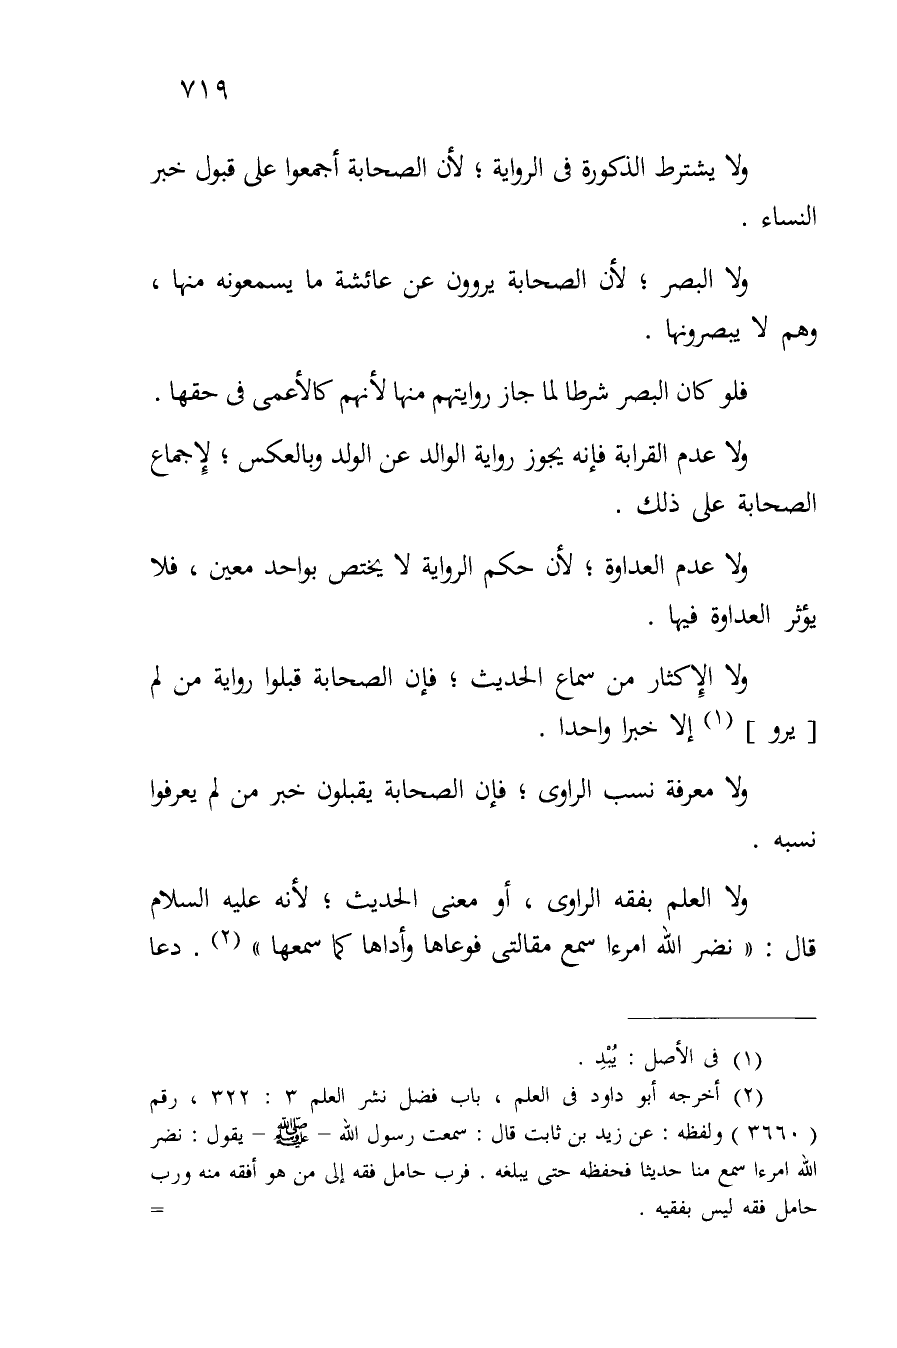 ٧١٩
ولا يشترط الذكورة فى الرواية ؛ لأن الصحابة أجمعوا على قبول خبر
النساء .
ولا البصر ؛ لأن الصحابة يروون عن عائشة ما يسمعونه منها ،
وهم لا يبصرونها .
فلو كان البصر شرطا لما جاز روايتهم منها لأنهم كالأعمى فى حقها .
ولا عدم القرابة فإنه يجوز رواية الوالد عن الولد وبالعكس ؛ لإجماع
الصحابة على ذلك .
ولا عدم العداوة ؛ لأن حكم الرواية لا يختص بواحد معين ، فلا
يؤثر العداوة فيها .
ولا الإكثار من سماع الحديث ؛ فإن الصحابة قبلوا رواية من لم
[ يرو ] (١) إلا خبرا واحدا .
ولا معرفة نسب الراوى ؛ فإن الصحابة يقبلون خبر من لم يعرفوا
نسبه .
ولا العلم بفقه الراوى ، أو معنى الحديث ؛ لأنه عليه السلام
قال : « نضر الله امرءا سمع مقالتى فوعاها وأداها كما سمعها » (٢) . دعا
(١) فى الأصل : يُبْدِ .
(٢) أخرجه أبو داود فى العلم ، باب فضل نشر العلم ٣ : ٣٢٢ ، رقم
( ٣٦٦٠ ) ولفظه : عن زيد بن ثابت قال : سمعت رسول الله – ﷺ – يقول : نضر
الله امرءا سمع منا حديثا فحفظه حتى يبلغه . فرب حامل فقه إلى من هو أفقه منه ورب
حامل فقه ليس بفقيه . =